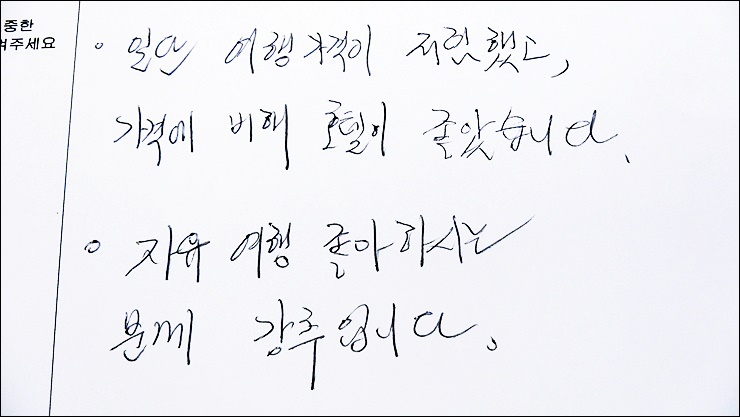 중한
겨주세요
◦ 일단 여행가격이 저렴했고,
가격에 비해 호텔이 좋았습니다.
◦ 자유 여행 좋아하시는
분께 강추입니다.